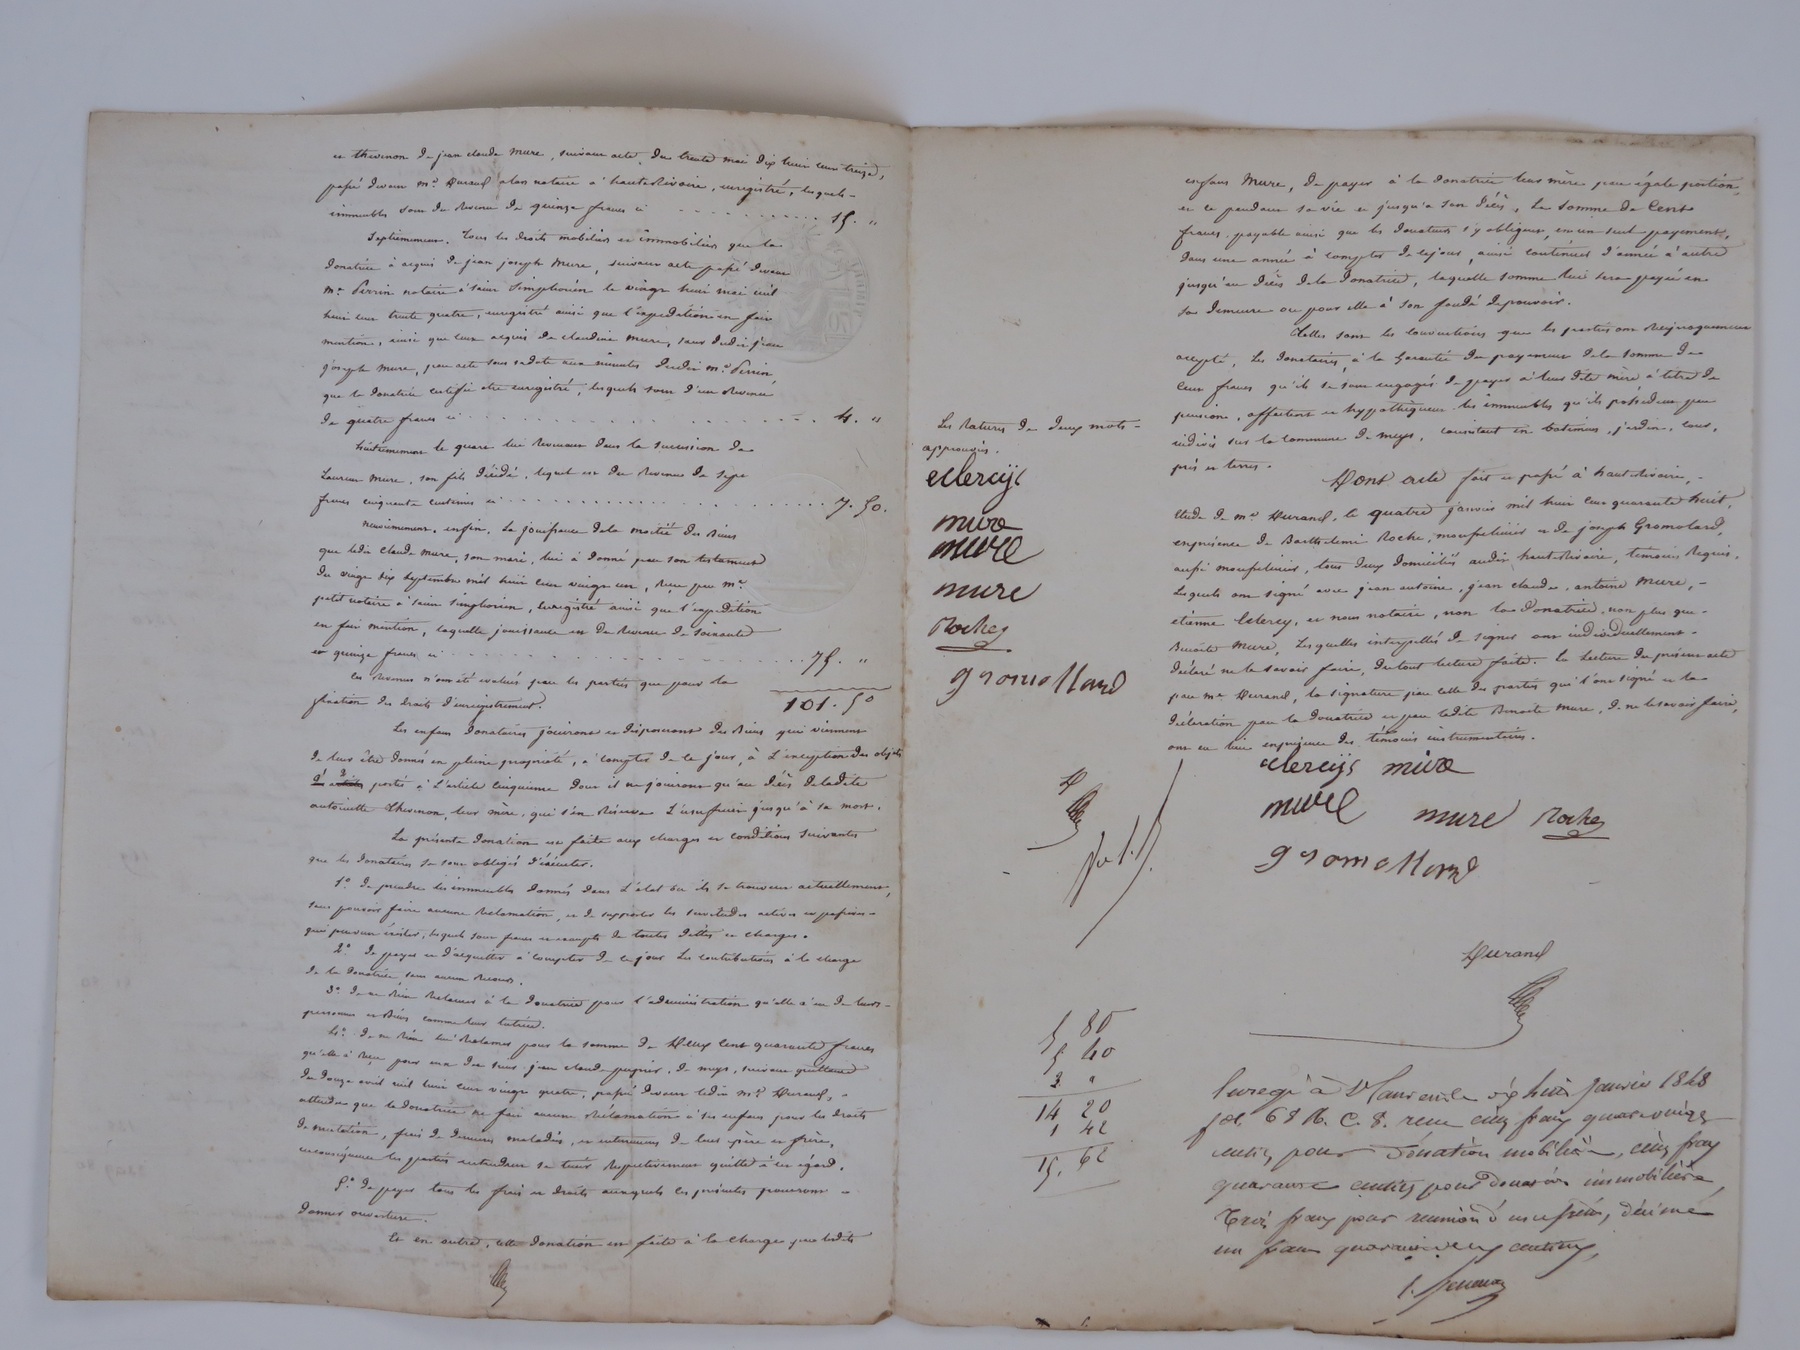 et thevenon de jean claude mure, suivant acte, du trente mai dix huit cent treize,
passé devant me Durand alors notaire à hauterivoire, enregistré, lesquels
immeubles sont de Revenu de quinze francs ci 15. "
Septiemement. Tous les droits mobiliers et immobiliers que la
donatrice à acquis de jean joseph Mure, suivant acte passé devant
me Perrin notaire à saint Simphorien le vingt huit mai mil
huit cent trente quatre, enregistré ainsi que l'expédition en fait
mention, ainsi que ceux acquis de claudine mure, sœur dudit jean
joseph mure, par acte sous sa date aux minutes dudit me Perrin,
que la donatrice certifie etre enregistré, lesquels sont d'un Revenu
de quatre francs ci 4. "
huitiemement le quart lui Revenant dans la succession de
Laurent Mure, son fils décédé, lequel est du Revenu de sept
francs cinquante centimes ci 7. 50.
neuviemement. enfin. La jouissance de la moitié des Biens
que ledit Claude Mure, son mari, lui à donné par son testament
du vingt six septembre mil huit cent vingt un, reçu par me
petit notaire à saint simphorien, enregistré ainsi que l'expédition
en fait mention, laquelle jouissance est de Revenu de soixante
et quinze francs ci 75. "
Ces Revenus n'ont été evalués par les parties que pour la
fixation des droits d'enregistrement. 101. 50
Les enfans donataires jouiront et disposeront des Biens qui viennent
de leur être donnés en pleine propriété, à compter de ce jour, à L'exception des objets
portés à L'article cinquieme dont ils ne jouiront qu'au décès de ladite
antoinette thevenon, leur mère, qui s'en Réserve L'usufruit jusqu'à sa mort.
La présente donation est faite aux charges et conditions suivantes
que les donataires se sont obligés d'exécuter.
1o. de prendre les immeubles donnés dans L'état où ils se trouvent actuellement,
sans pouvoir faire aucune Reclamation, et de supporter les servitudes actives et passives
qui peuvent exister, lesquels sont francs et exempts de toutes dettes et charges.
2o. de payer et d'acquitter à compter de ce jour Les contributions à la charge
de la donatrice sans aucun Recours.
3o. de ne Rien Reclamer à la donatrice pour l'administration qu'elle a eu de leurs
personnes et Biens comme leur tutrice.
4o. de ne Rien lui Reclamer pour la somme de Deux cent quarante francs
qu'elle à Reçu pour eux du sieur jean claude , de meys, suivant quittance
du douze avril mil huit cent vingt quatre, passé devant ledit me Durand,
attendu que la donatrice ne fait aucune Réclamation à ses enfans pour les droits
de mutation, frais de derniere maladie, et enterrement de leur père et frère,
en conséquence les parties entendent se tenir Respectivement quitte à cet égard.
5o. de payer tous les frais et droits auxquels les présentes pourront
donner ouverture.
Et en outre, cette donation est faite à la charge par lesdits
enfans Mure, de payer à la donatrice leur mère par égale portion,
et ce pendant sa vie et jusqu'à son décès, La somme de Cent
francs, payable ainsi que les donateurs s'y obligent, en un seul payement,
dans une année à compter de ce jour, ainsi continuer d'année à autre
jusqu'au décès de la donatrice, laquelle somme lui sera payée en
sa demeure ou pour elle à son fondé de pouvoir.
Telles sont les conventions que les parties ont Reciproquement
accepté, Les donataires, à la Garantie du payement de la somme de
Cent francs qu'ils se sont engagés de payer à leur dite mère, à titre de
pension, affectent et hypothèquent les immeubles qu'ils possedent par
indivis sur la Commune de meys, consistant en batimens, jardin, cour,
prés et terres.
Dont acte fait et passé à hauterivoire,
étude de me Durand, le quatre janvier mil huit cent quarante huit,
en présence de Barthelemi Roche, et de joseph Gromolard,
aussi , tous deux domiciliés audit hauterivoire, temoins Requis.
Lesquels ont signé avec jean antoine, jean claude, antoine Mure,
etienne Eclercy, et nous notaire, non la Donatrice, non plus que
Benoite Mure, Lesquelles interpellés de signer ont individuellement
déclaré ne le savoir faire, du tout lecture faite. La Lecture du présent acte
par me Durand, la signature par celle des parties qui l'ont signé et la
déclaration par la donatrice et par ladite Benoite Mure, de ne le savoir faire,
ont eu lieu en présence des témoins instrumentaires.
eclercijs mure
mure mure Roche
gromollard
Durand
Les Ratures de deux mots
approuvées.
eclercijs
mure
mure
mure
Roche
gromollard
D
5 80
5 40
3 "
14 20
1 42
15. 62
Enregé à St Laurent le dix huit janvier 1848
fol. 68 R. C. 8. reçu cinq francs quatre vingts
centimes pour Donation mobilière, cinq francs
quarante centimes pour donation immobilière
Trois francs pour reunion d'usufruit, décime
un franc quarante deux centimes,